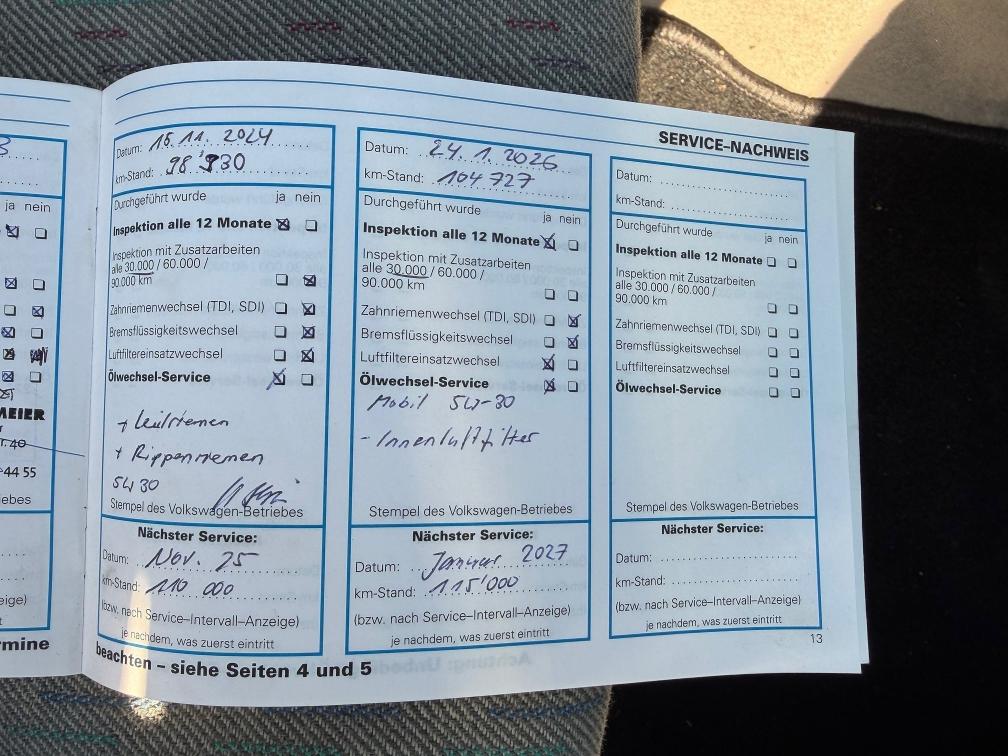 SERVICE–NACHWEIS
3
ja nein
MEIER
44 55
rmine
Datum: 15.11. 2024
km-Stand: 98'930
Durchgeführt wurde ja nein
Inspektion alle 12 Monate
Inspektion mit Zusatzarbeiten
alle 30.000 / 60.000 /
90.000 km
Zahnriemenwechsel (TDI, SDI)
Bremsflüssigkeitswechsel
Luftfiltereinsatzwechsel
Ölwechsel-Service
+ Keilriemen
+ Rippenriemen
5W30
Stempel des Volkswagen-Betriebes
Nächster Service:
Datum: Nov. 25
km-Stand: 110 000
(bzw. nach Service–Intervall–Anzeige)
je nachdem, was zuerst eintritt
Datum: 24. 1. 2026
km-Stand: 104 727
Durchgeführt wurde ja nein
Inspektion alle 12 Monate
Inspektion mit Zusatzarbeiten
alle 30.000 / 60.000 /
90.000 km
Zahnriemenwechsel (TDI, SDI)
Bremsflüssigkeitswechsel
Luftfiltereinsatzwechsel
Ölwechsel-Service
Mobil 5W-30
- Innenluftfilter
Stempel des Volkswagen-Betriebes
Nächster Service:
Datum: Januar 2027
km-Stand: 115'000
(bzw. nach Service–Intervall–Anzeige)
je nachdem, was zuerst eintritt
Datum:
km-Stand:
Durchgeführt wurde ja nein
Inspektion alle 12 Monate
Inspektion mit Zusatzarbeiten
alle 30.000 / 60.000 /
90.000 km
Zahnriemenwechsel (TDI, SDI)
Bremsflüssigkeitswechsel
Luftfiltereinsatzwechsel
Ölwechsel-Service
Stempel des Volkswagen-Betriebes
Nächster Service:
Datum:
km-Stand:
(bzw. nach Service–Intervall–Anzeige)
je nachdem, was zuerst eintritt
13
beachten – siehe Seiten 4 und 5